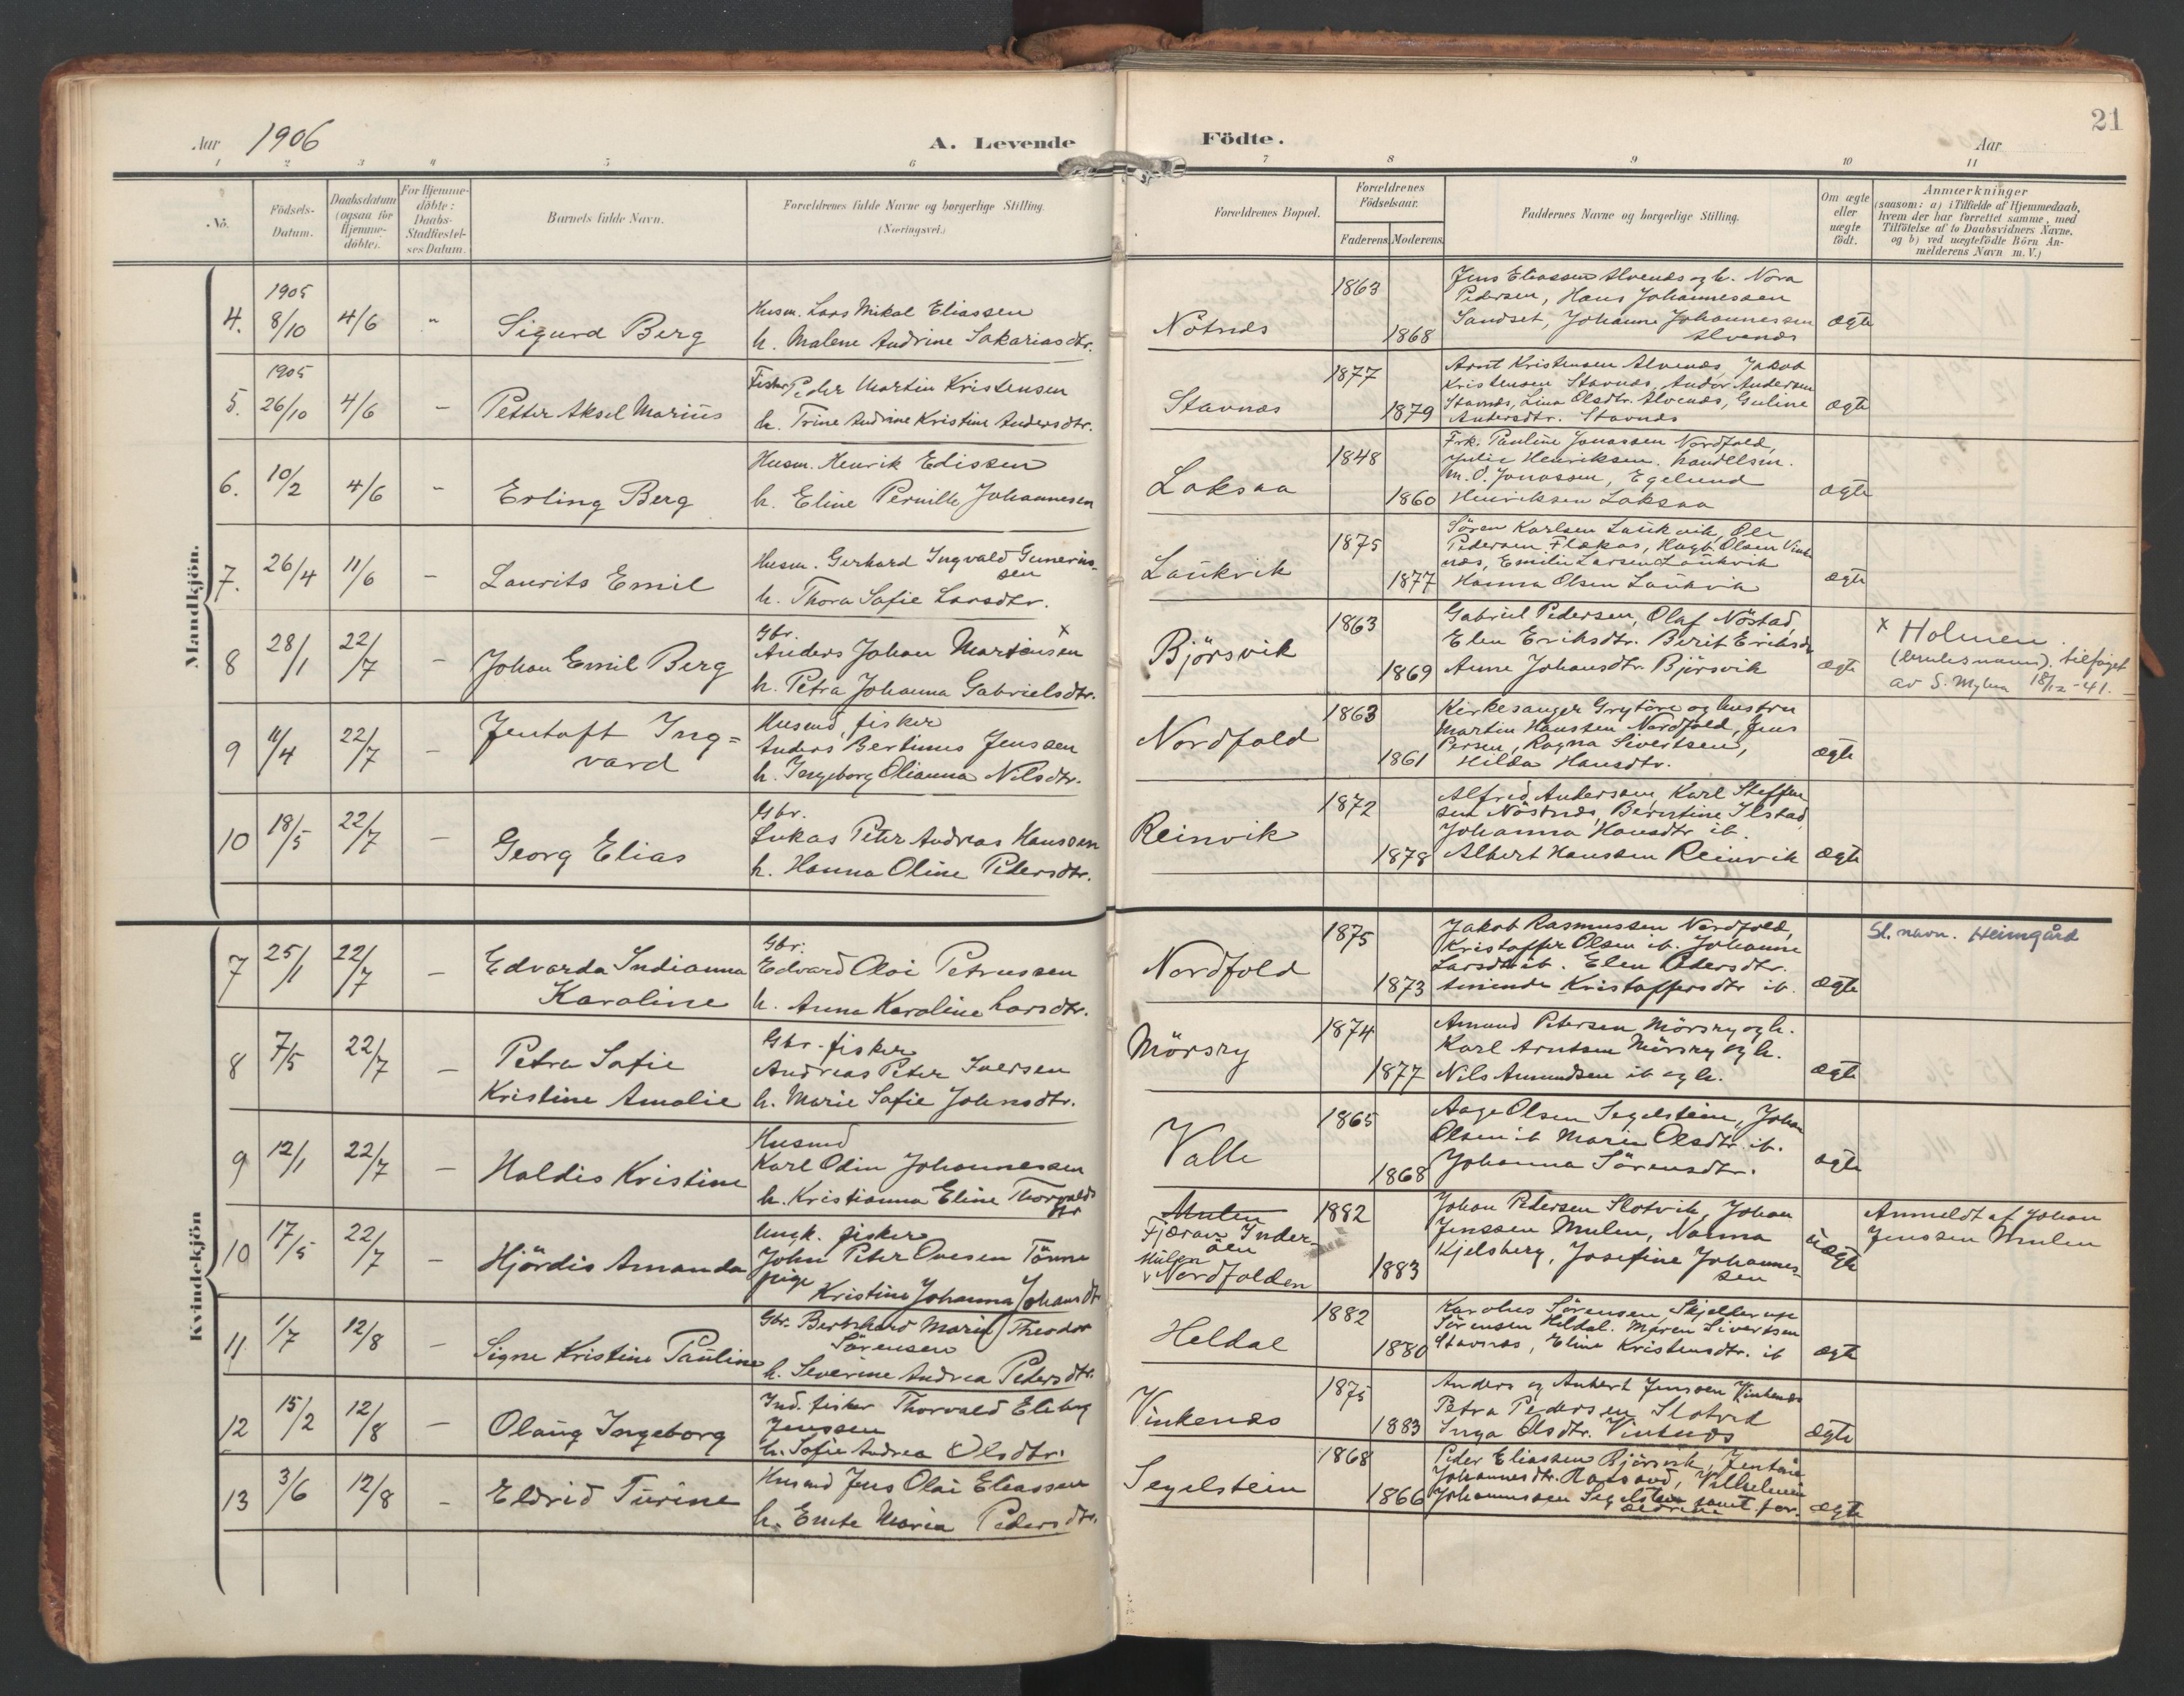 Aar 1906
A. Levende Födte.
Aar
21
1 2 3 4 5 6 7 8 9 10 11
No.
Födsels-
Datum.
Daabsdatum
(ogsaa for
Hjemme-
döbte).
For Hjemme-
döbte:
Daabs-
Stadfæstel-
ses Datum.
Barnets fulde Navn.
Forældrenes fulde Navne og borgerlige Stilling.
(Næringsvei.)
Forældrenes Bopæl.
Forældrenes
Födselsaar.
Faderens. Moderens.
Faddernes Navne og borgerlige Stilling.
Om ægte
eller
uægte
födt.
Anmærkninger
(saasom: a) i Tilfælde af Hjemmedaab,
hvem der har forrettet samme, med
Tilföielse af to Daabsvidners Navne.
og b) ved uægtefödte Börn An-
melderens Navn m. V.)
Mandkjön.
4.
1905
8/10
4/6
"
Sigurd Berg
Husm. Lars Mikal Eliassen
h. Malene Andrine Sakariasdtr.
Notnæs
1863
1868
Jens Eliassen Alvenæs og h. Nora
Pedersen, Hans Johannessen
Sandset, Johanne Johannessen
Alvenæs
ægte
5.
1905
26/10
4/6
–
Petter Aksel Marius
Fisker Peder Martin Kristensen
h. Trine Andrine Kristine Andersdtr.
Stavnæs
1877
1879
Arnt Kristensen Alvenæs, Jakob
Kristensen Stavnæs, Andor Andersen
Stavnæs, Lina Olsdtr. Alvenæs, Guline
Andersdtr. Stavnæs
ægte
6.
10/2
4/6
"
Erling Berg
Husm. Henrik Edissen
h. Eline Pernille Johannesen
Laksaa
1848
1860
Frk. Pauline Jonassen Nordfold,
Julie Henriksen. handelsm.
M. O. Jonassen, Egelund
Henriksen Laksaa
ægte
7.
26/4
11/6
–
Laurits Emil
Husm. Gerhard Ingvald Gunerius-
sen
h. Thora Sofie Larsdtr.
Laukvik
1875
1877
Sören Karlsen Laukvik, Ole
Pedersen Flækøs, Hagb. Olsen Vink
næs, Emilie Larsen Laukvik
Hanna Olsen Laukvik
ægte
8
28/1
22/7
–
Johan Emil Berg
Gbr. x
Anders Johan Martinsen
h. Petra Johanna Gabrielsdtr.
Björsvik
1863
1869
Gabriel Pedersen, Olaf Nöstad
Elen Eriksdtr. Berit Eriksdr
Anne Johansdtr. Björsvik
ægte
x Holmen
(bruksnavn). tilføiet
av S. Myhra 18/12-41.
9
11/4
22/7
–
Jentoft Ing=
vard
Husmd. fisker
Anders Bertinus Jenssen
h. Ingeborg Olianna Nilsdtr.
Nordfold
1863
1861
Kirkesanger Grytöre og hustru
Martin Hanssen Nordfold, Jens
Persen, Ragna Sivertsen,
Hilda Hansdtr.
ægte
10
18/5
22/7
–
Georg Elias
Gbr.
Lukas Peter Andreas Hanssen
h. Hanna Oline Pedersdtr.
Reinvik
1872
1878
Alfred Andersen, Karl Steffen
sen Nöstnes, Berntine Ilstad,
Johanna Hansdtr ib.
Albert Hanssen Reinvik
ægte
Kvindekjön
7
25/1
22/7
–
Edvarda Indianna
Karoline
Gbr.
Edvard Oloi Petrussen
h. Anne Karoline Larsdtr.
Nordfold
1875
1873
Jakob Rasmussen Nordfold,
Kristoffer Olsen ib. Johanne
Larsdtr ib. Elen Pedersdtr.
Kristoffersdtr ib.
ægte
Sl. navn. Heimgård
8
7/5
22/7
–
Petra Sofie
Kristine Amalie
Gbr. fisker
Andreas Peter Iversen
h. Marie Sofie Johnsdtr.
Mörsry
1874
1877
Amund Petersen Mörsry og h.
Karl Arntsen Mörsry og h.
Nils Amundsen ib og h.
ægte
9
12/1
22/7
–
Haldis Kristine
Husmd
Karl Odin Johannessen
h. Kristianna Eline Thorvalds
dtr
Valle
1865
1868
Aage Olsen Segelstein, Johan
Olsen ib Marie Olsdtr. ib.
Johanna Sörensdtr.
ægte
10
17/5
22/7
–
Hjördis Amanda
Ungk. fisker
John Peter Ovesen Tönne
pige
Kristine Johanna Johansdtr
Mulen
Fjærøv Inder-
öen
Mulen
Nordfolden
1882
1883
Johan Pedersen Slotvik, Johan
Jenssen Mulen, Nanna
Kjelsberg, Josefine Johannes-
sen
uægte
Anmeldt af Johan
Jenssen Mulen
11
1/7
12/8
–
Signe Kristine Pauline
Gbr. Bernhard Marin Theodor
Sörensen
h. Severine Andrea Pedersdtr.
Heldal
1882
1880
Karolus Sörensen, Skjellerup
Sörensen Heldal. Maren Sivertsen
Stavnæs, Eline Kristensdtr. ib
ægte
12
15/2
12/8
–
Olaug Ingeborg
Ind. fisker Thorvald Eliberg
Jenssen
h. Sofie Andrea Olsdtr.
Vinkenæs
1875
1883
Anders og Anbert Jenssen Vinkenæs
Petra Pedersen Slotvik
Inga Olsdtr. Vinknæs
ægte
13
3/6
12/8
–
Eldrid Turine
Husmd Jens Olai Eliassen
h. Emte Maria Pedersdtr.
Segelstein
1868
1866
Peder Eliassen Björsvik, Jentine
Johannesdtr. Rotsand, Vilhelmin
Johannessen Segelstein samt for-
ældrene
ægte